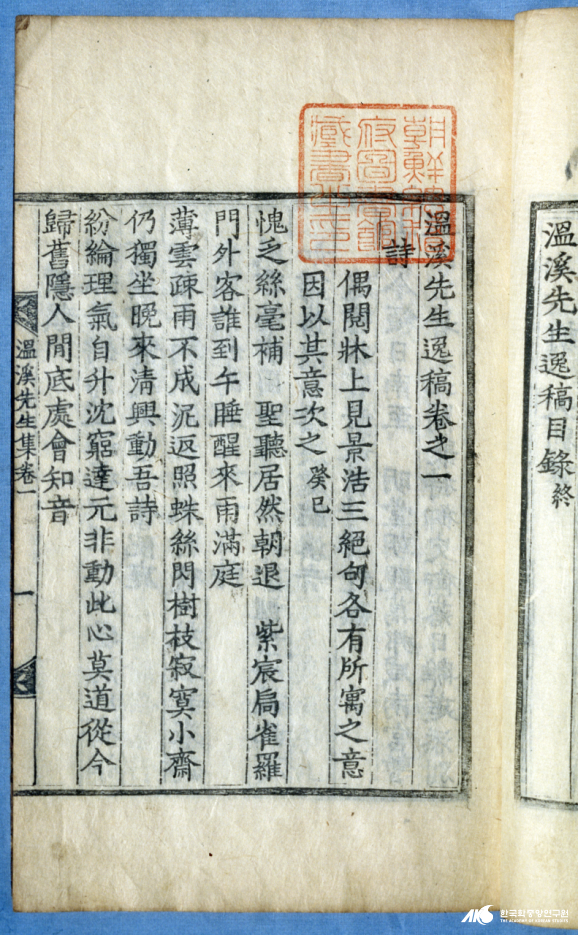 溫溪先生逸稿目錄 終
溫溪先生逸稿卷之一
詩
偶閱牀上見景浩三絕句各有所寓之意
因以其意次之 癸巳
愧乏絲毫補 聖聽居然朝退 紫宸扃雀羅
門外客誰到午睡醒來雨滿庭
薄雲疎雨不成泥返照蛛絲閃樹枝寂寞小齋
仍獨坐晚來清興動吾詩
紛綸理氣自升沈窮達元非動此心莫道從今
歸舊隱人間底處會知音
溫溪先生集卷一
一
朝鮮
府圖書館
藏書之印
AKS 한국학중앙연구원
THE ACADEMY OF KOREAN STUDIES